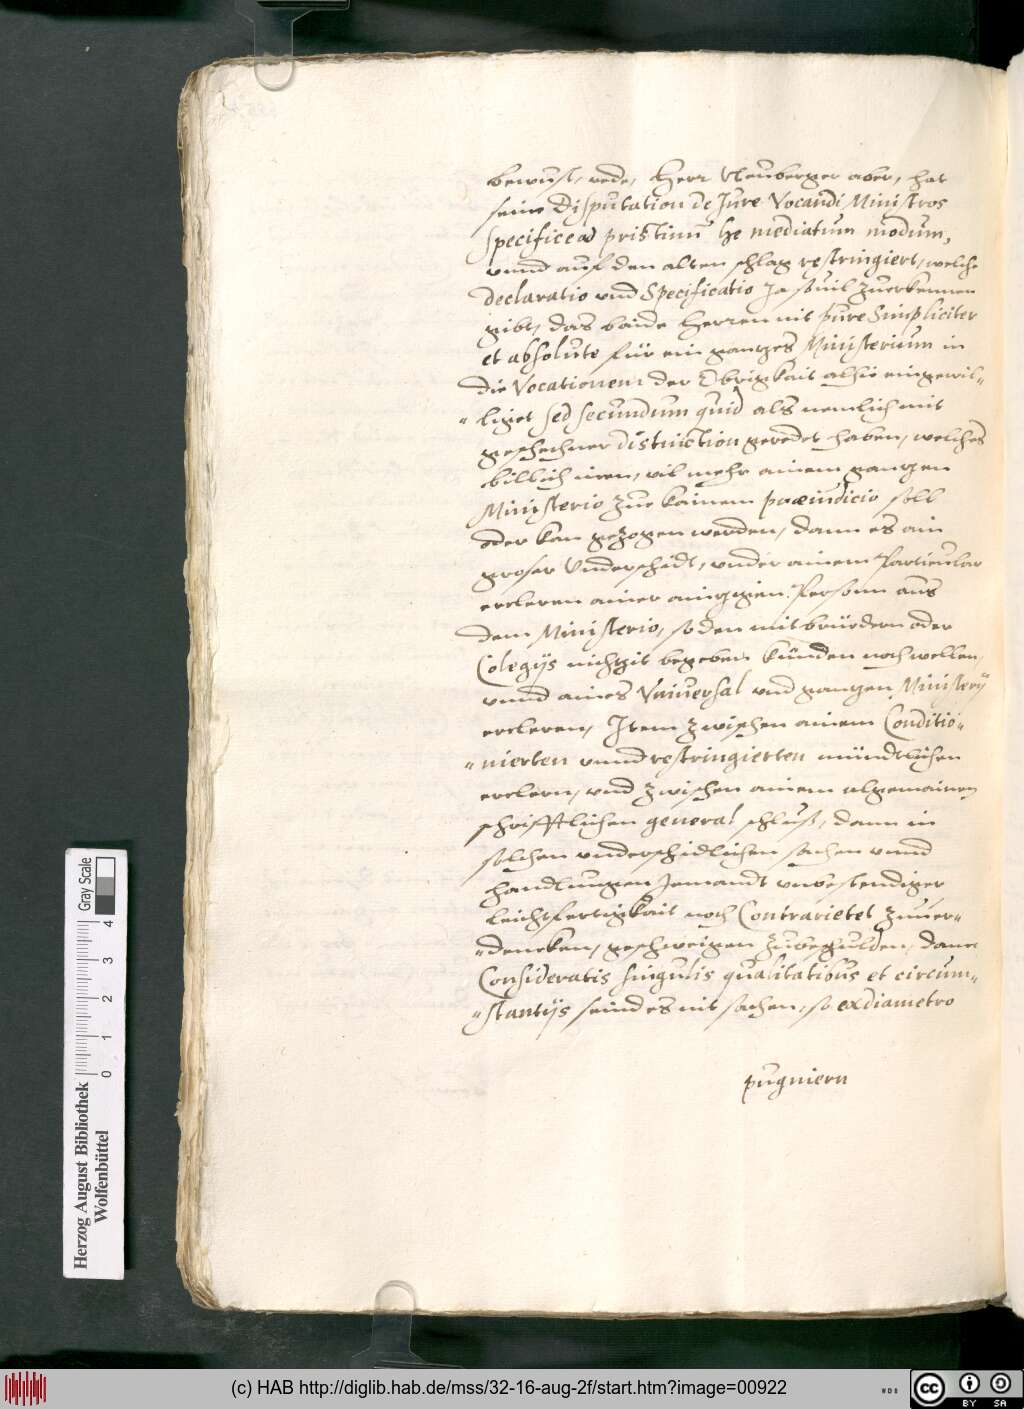 bewust, rede, Herr Neuberger aber, hat
seine Disputation de Jure Vocandi Ministros
specifice ad pristinũ he mediatum modum,
vnnd auf den alten schlag restringiert, welche
declaratio vnd Specificatio Ja souil zuerkennen
gibt, das baide Herren nit pure Simpliciter
et absolute für ein gantzes Ministerium in
die Vocationem der Obrigkait alhie eingewil-
liget sed secundum quid als nemlich mit
geschechner distinction geredet haben, welches
billich inen, vil mehr ainem gantzen
Ministerio zue kainem praeiudicio soll
oder kan gezogen werden, dann es ain
groser Vnderschidt, vnder ainem Particular
ercleren ainer aintzigen Person aus
dem Ministerio, so den mit brüedern oder
Colegijs nichtzit begeben künden noch wellen,
vnnd aines Vniuersal vnd gantzen Ministerij
ercleren, Item zwischen ainem Conditio-
nierten vnnd restringierten mündtlichen
erclern, vnd zwischen ainem algemainen
schrifftlichen general schluß, dann in
solchen vnderschidlichen sachen vnnd
handlungen Jemandt vnbestendiger
leichtfertigkait noch Contrarietet zuuer-
dencken, geschweigen zubeschulden, dann
Consideratis singulis qualitatibus et circum-
stantijs seind es nit sachen, so ex diametro
pugniern
Herzog August Bibliothek
Wolfenbüttel
0 1 2 3 4
Gray Scale
(c) HAB http://diglib.hab.de/mss/32-16-aug-2f/start.htm?image=00922
WDB
CC BY SA